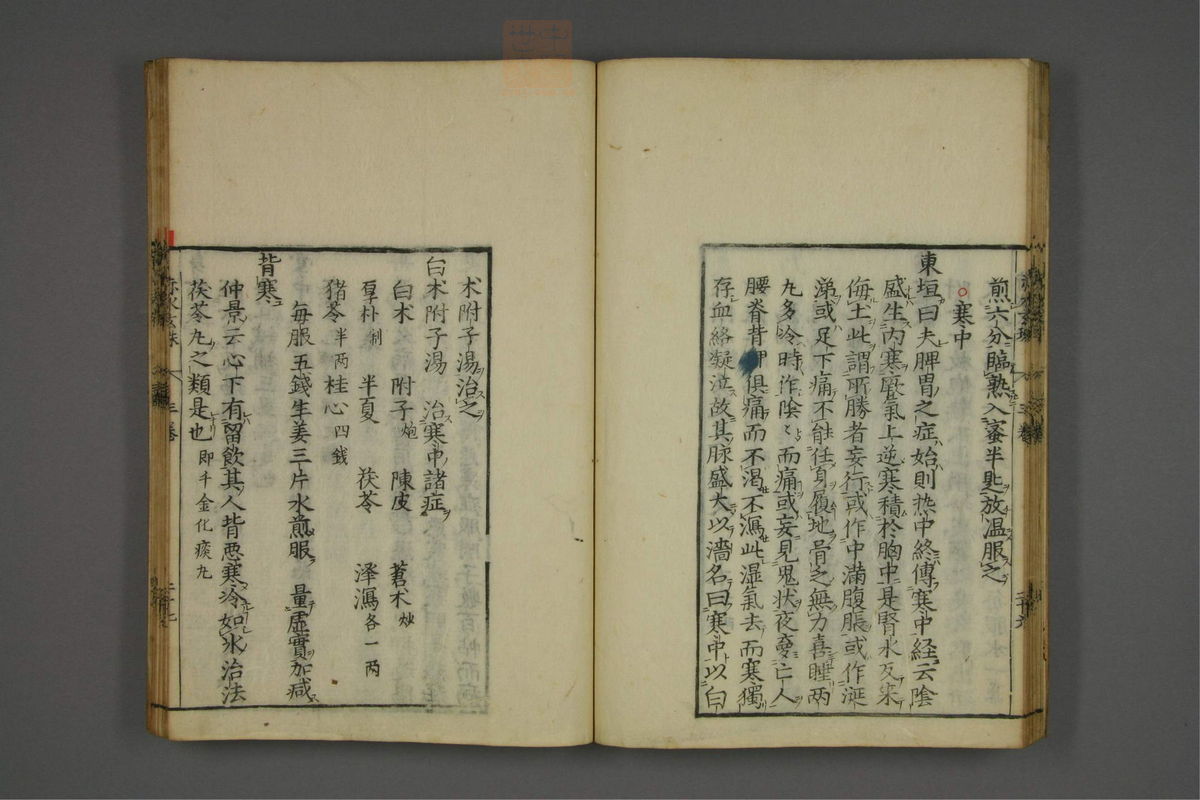 煎六分臨熟入蜜半匙放温服之
寒中
東垣曰夫脾胃之症始則热中終傳寒中経云陰
盛生内寒厥氣上逆寒積於胸中是腎水反来
侮土此謂所勝者妄行或作中滿腹脹或作涎
涕或足下痛不能任身履地骨乏無力喜睡两
丸多冷時作陰〻而痛或妄見鬼状夜夢亡人
腰脊背胛俱痛而不渇不瀉此湿氣去而寒獨
存血絡凝泣故其脉盛大以濇名曰寒中以白
术附子湯治之
白术附子湯 治寒中諸症
白术 附子炮 陳皮 蒼术炒
厚朴制 半夏 茯苓 澤瀉各一两
猪苓半两 桂心四錢
毎服五錢生姜三片水煎服 量虚實加减
背寒
仲景云心下有留飲其人背悪寒冷如氷治法
茯苓丸之類是也 即千金化痰丸
三卷